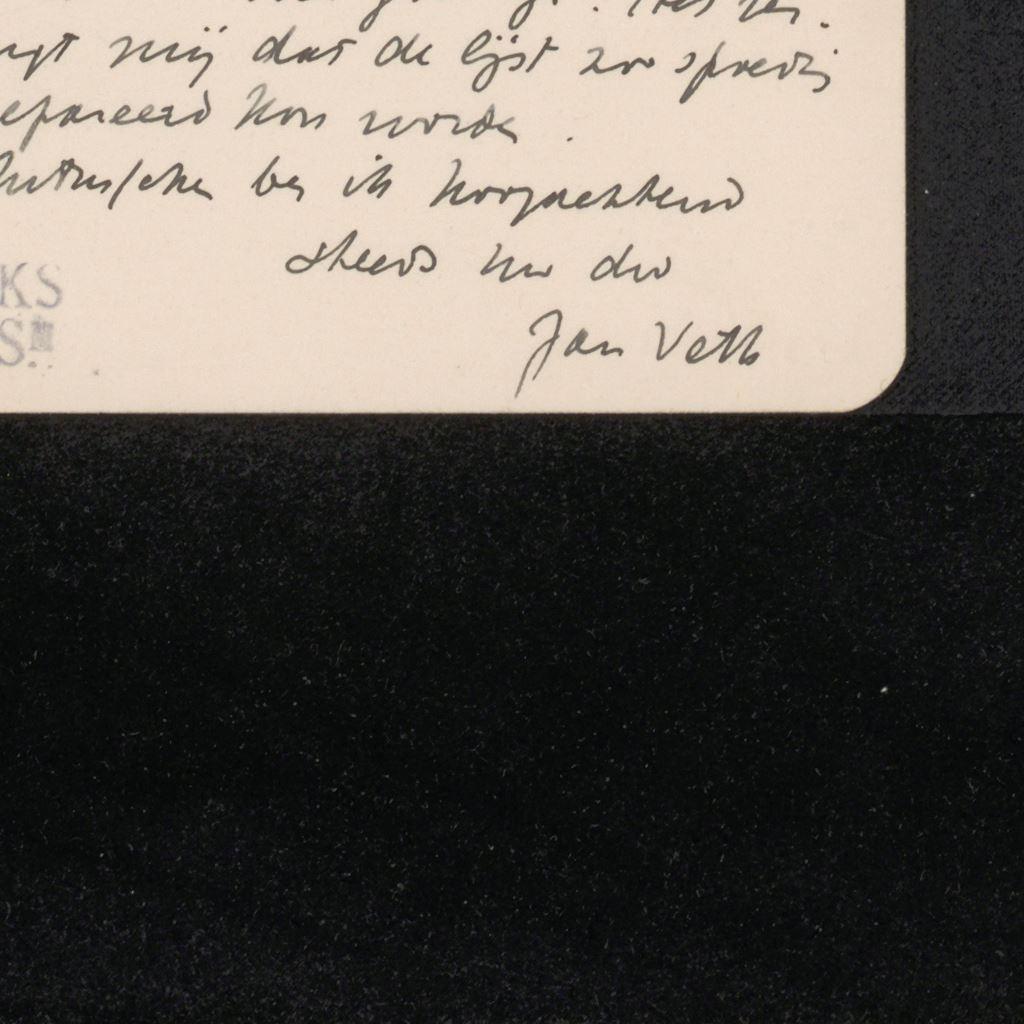 Het ver-
ugt mij dat de lijst zoo spoedig
epareerd kon worden.
Intusschen ben ik hoogachtend
steeds uw dw
Jan Veth
KS
S